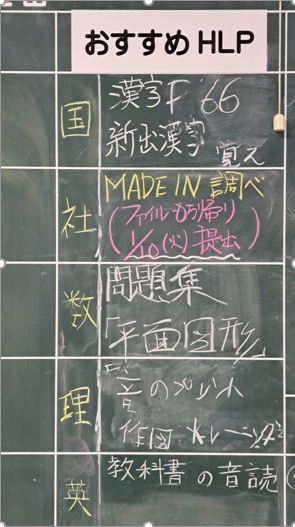 おすすめ HLP
国 漢字F '66
新出漢字 覚え
社 MADE IN 調べ
(ファイルもち帰り
1/10(火)提出)
数 問題集
「平面図形」
理 音の
作図
英 教科書の音読